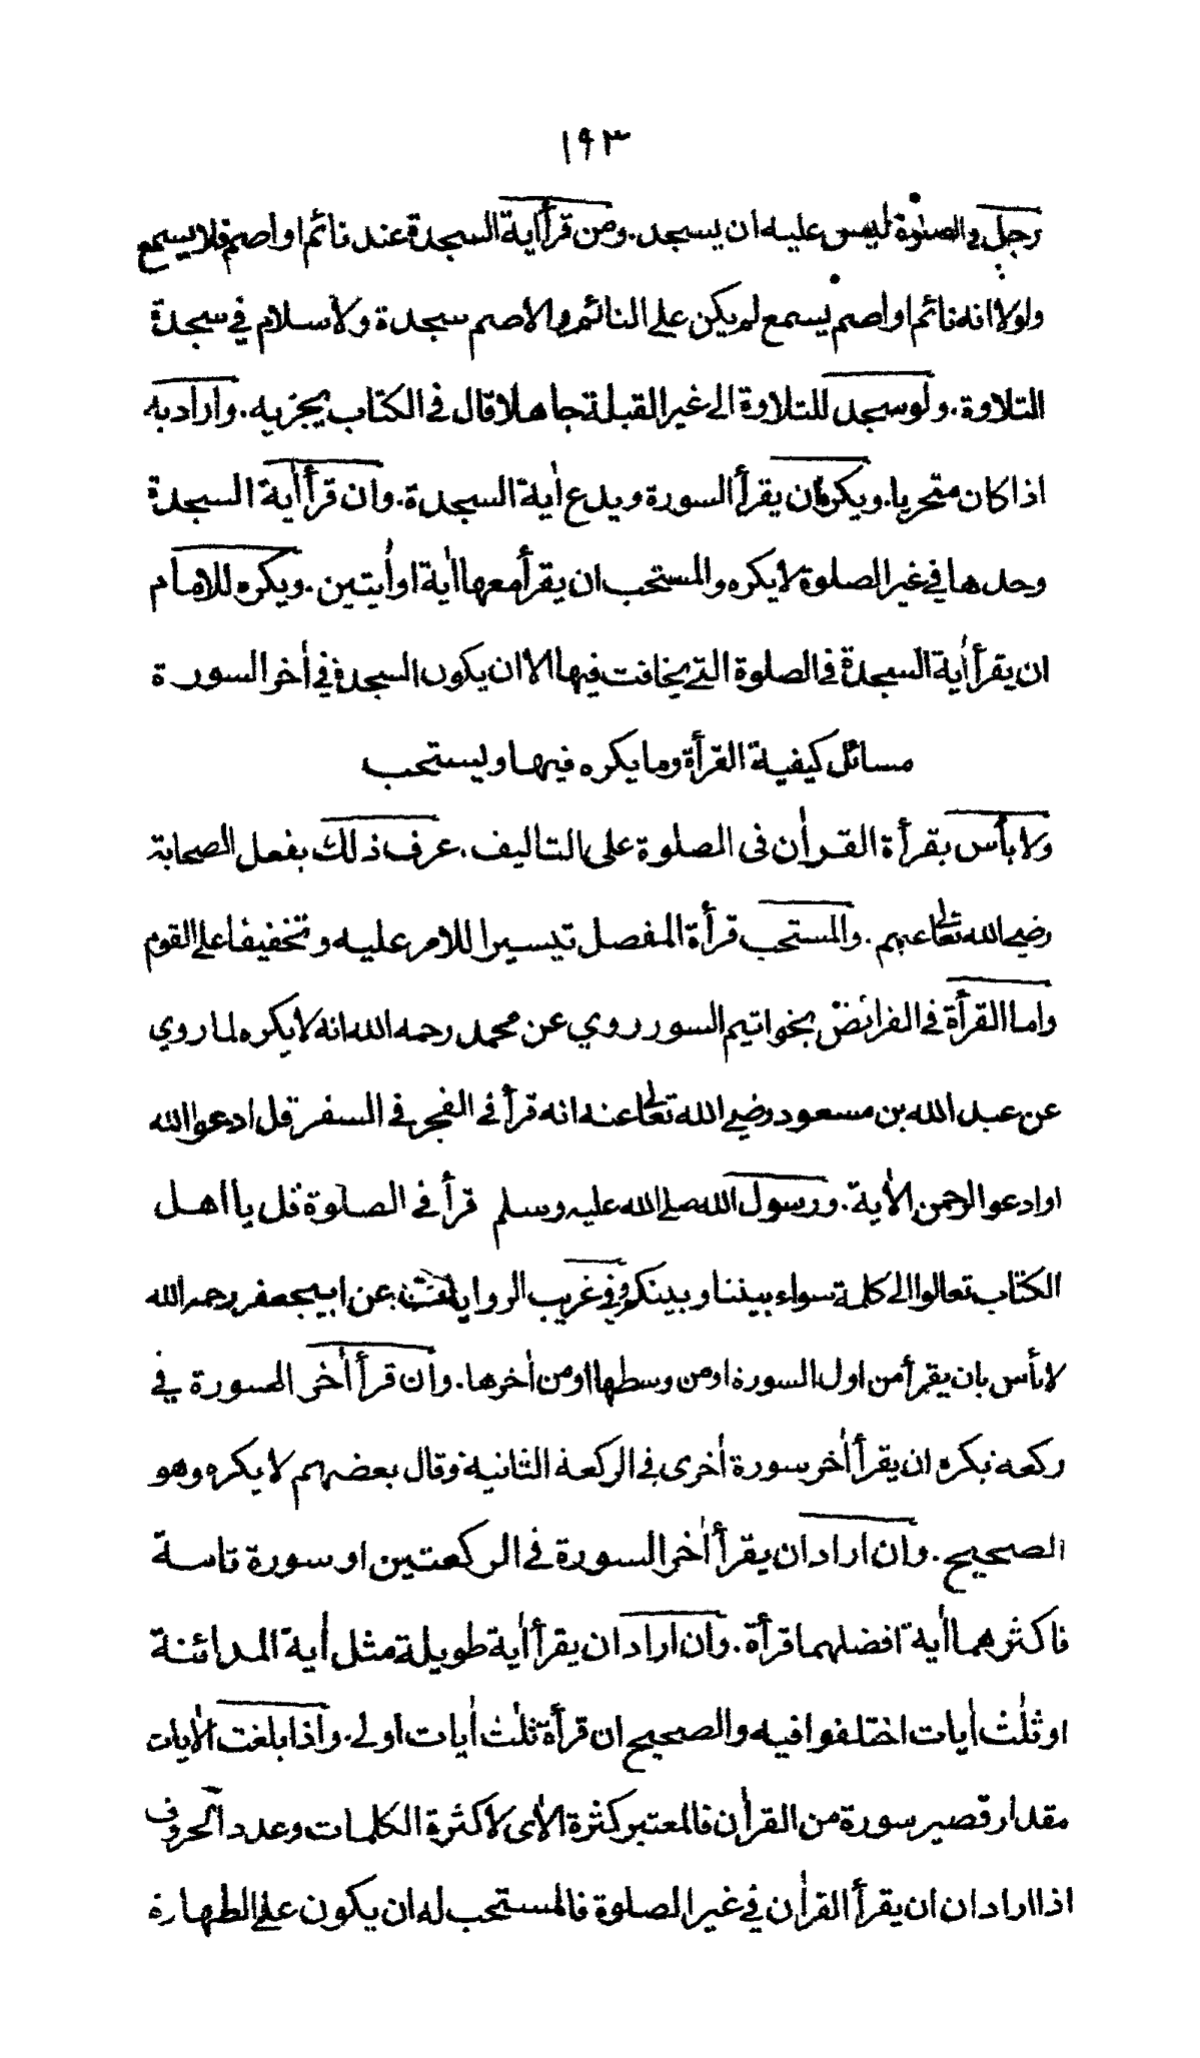 ١٩٣
رجل في الصلوة ليس عليه ان يسجد. ومن قرأ اية السجدة عند نائم او اصم فلا يسمع
ولولا انه نائم او اصم يسمع لم يكن على النائم والاصم سجدة ولا سلام في سجدة
التلاوة. ولو سجد للتلاوة الى غير القبلة جاهلا قال في الكتاب يجزيه. واراد به
اذا كان متحريا. ويكره ان يقرأ السورة ويدع اٰية السجدة. وان قرأ اٰية السجدة
وحدها في غير الصلوة لا يكره والمستحب ان يقرأ معها اٰية او اٰيتين. ويكره للامام
ان يقرأ اٰية السجدة في الصلوة التي يخافت فيها الا ان يكون السجدة في اٰخر السورة
مسائل كيفية القرأة وما يكره فيها ويستحب
ولا بأس بقرأة القراٰن في الصلوة على التاليف. عرف ذلك بفعل الصحابة
رضي الله تعالى عنهم. والمستحب قرأة المفصل تيسيرا للامر عليه وتخفيفا على القوم
واما القرأة في الفرائض بخواتيم السور روي عن محمد رحمه الله انه لا يكره لما روي
عن عبد الله بن مسعود رضي الله تعالى عنه انه قرأ في الفجر في السفر قل ادعوا الله
او ادعوا الرحمن الاٰية. ورسول الله صلى الله عليه وسلم قرأ في الصلوة قل يا اهل
الكتاب تعالوا الى كلمة سواء بيننا وبينكم وفي غريب الروايات عن ابي جعفر رحمه الله
لا بأس بان يقرأ من اول السورة او من وسطها او من اٰخرها. وان قرأ اٰخر السورة في
ركعة يكره ان يقرأ اٰخر سورة اٰخرى في الركعة الثانية وقال بعضهم لا يكره وهو
الصحيح. وان اراد ان يقرأ اٰخر السورة في الركعتين او سورة تامة
فاكثرهما اٰية افضلهما قرأة. وان اراد ان يقرأ اٰية طويلة مثل اٰية المدائنة
او ثلٰث اٰيات اختلفوا فيه والصحيح ان قرأة ثلٰث اٰيات اولى. واذا بلغت الاٰيات
مقدار قصير سورة من القراٰن فالمعتبر كثرة الاٰى لا كثرة الكلمات وعدد الحروف
اذا اراد ان ان يقرأ القراٰن في غير الصلوة فالمستحب له ان يكون على الطهارة